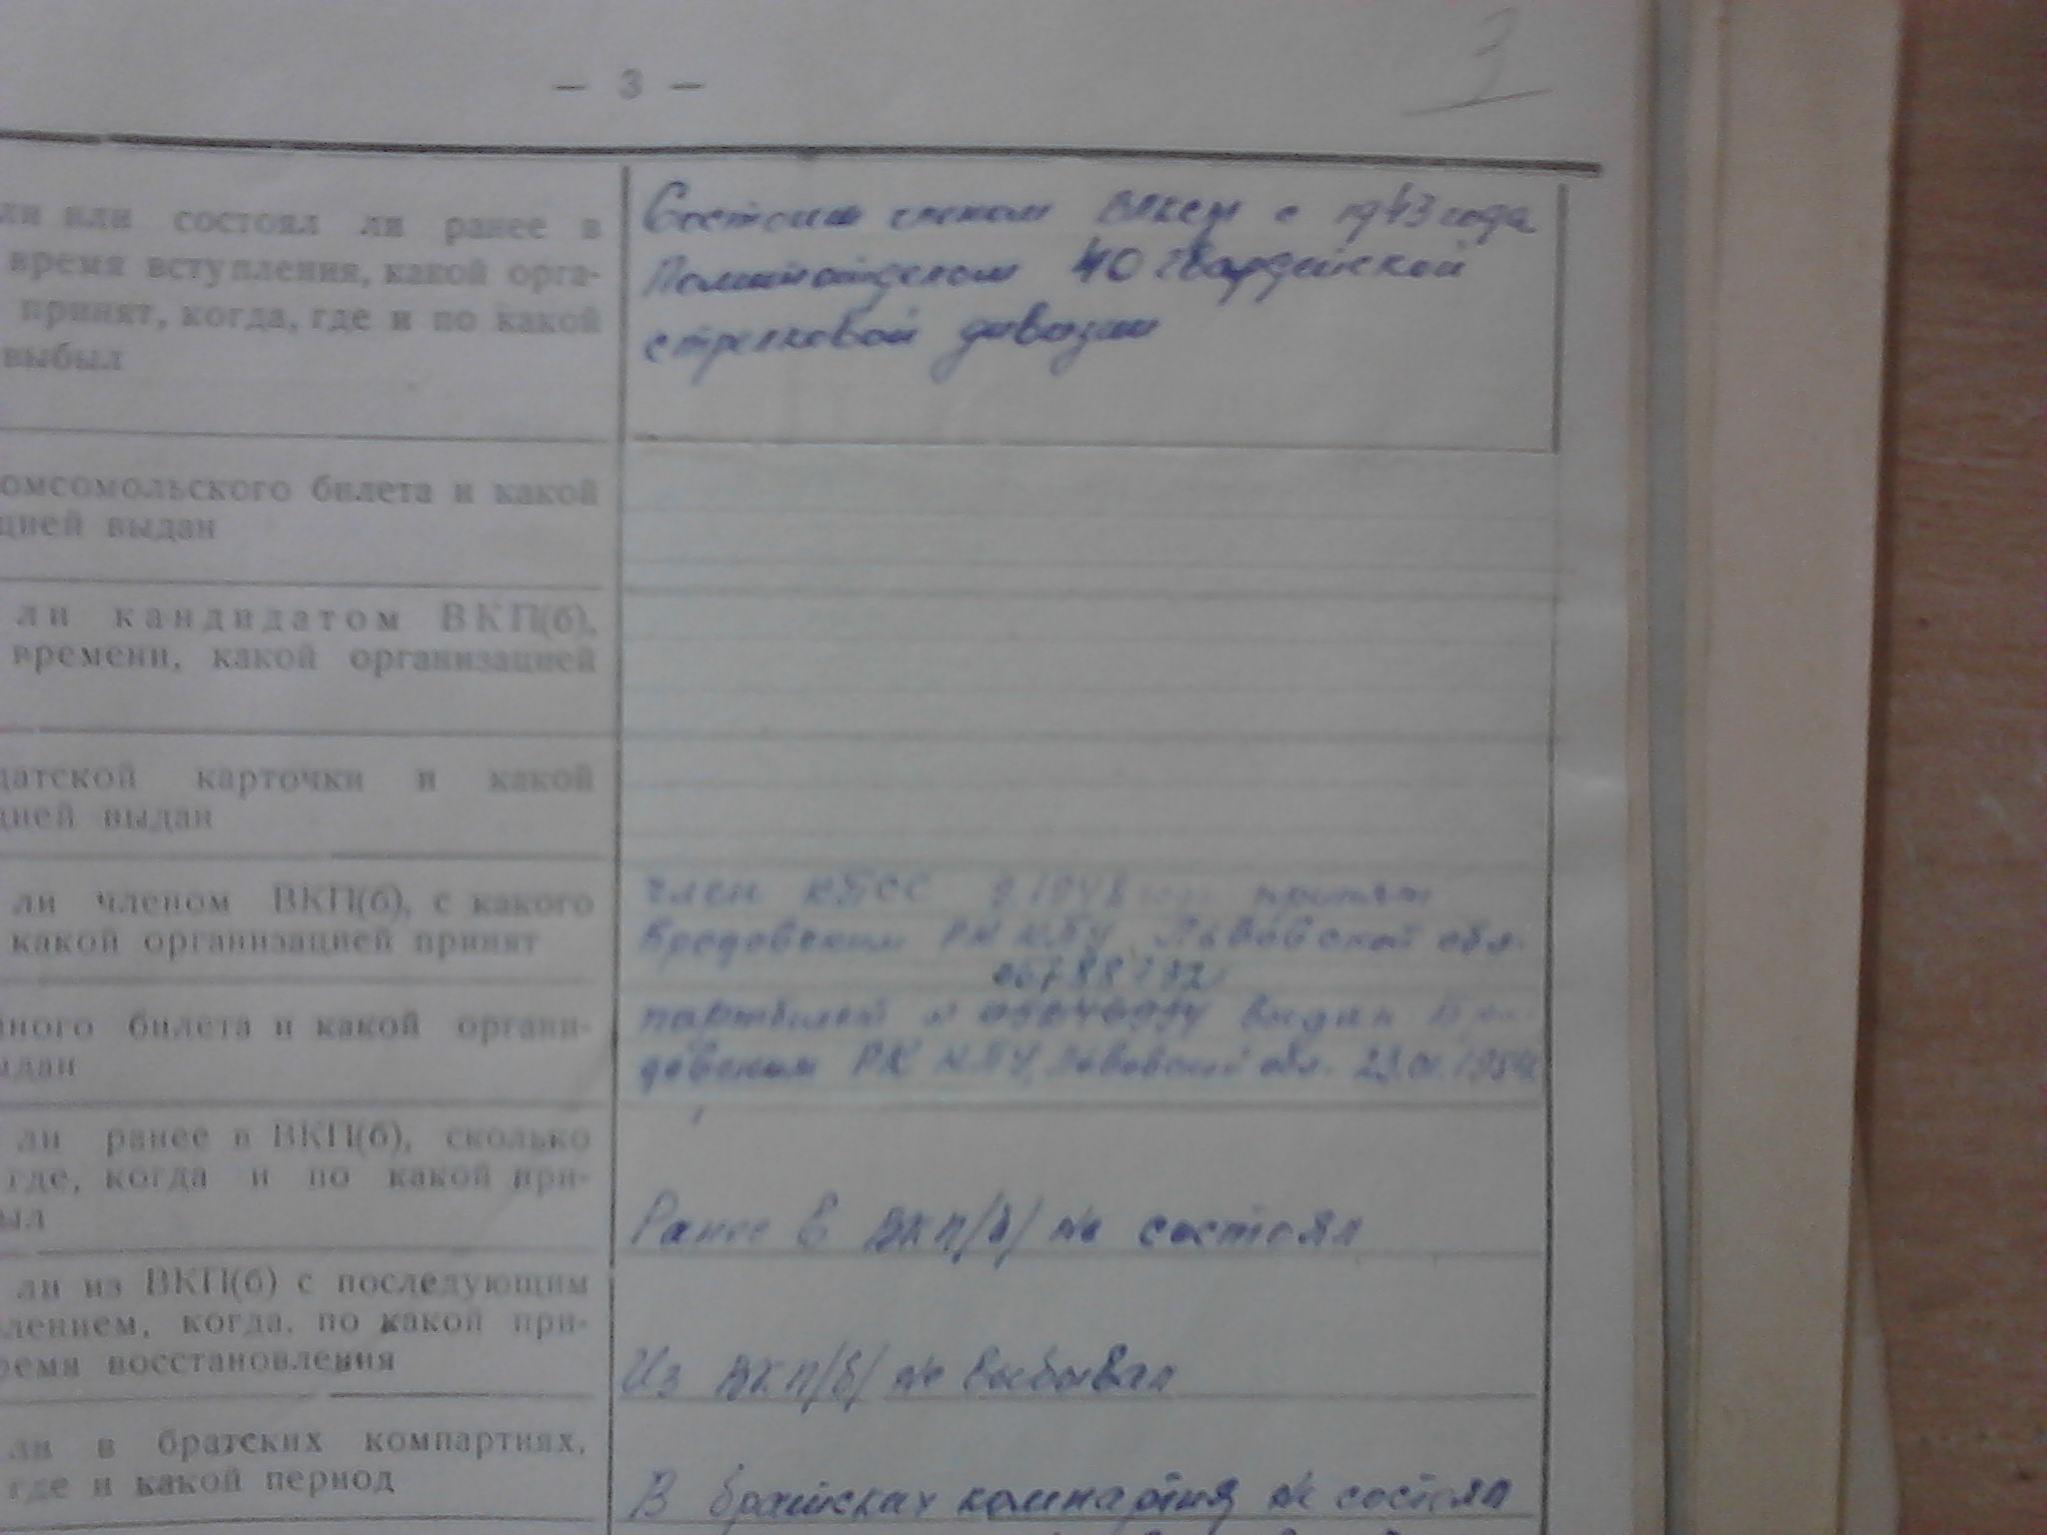 — 3 —
3
ли или состоял ли ранее в
время вступления, какой орга-
принят, когда, где и по какой
выбыл
Состоит членом ВЛКСМ с 1943 года
Политотделом 40 гвардейской
стрелковой дивизии
омсомольского билета и какой
цией выдан
ли кандидатом ВКП(б),
времени, какой организацией
датской карточки и какой
цией выдан
ли членом ВКП(б), с какого
какой организацией принят
член КПСС 1948 принят
Бродовским РК КПУ, Львовской обл.
ного билета и какой органи-
ыдан
партбилет № выдан Бро-
довским РК КПУ, Львовской обл. 23.01.1954
ли ранее в ВКП(б), сколько
где, когда и по какой при-
ыл
Ранее в ВКП/б/ не состоял
ли из ВКП(б) с последующим
лением, когда, по какой при-
ремя восстановления
Из ВКП/б/ не выбывал
ли в братских компартиях,
где и какой период
В братских компартиях не состоял